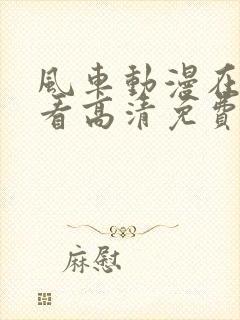 風車動漫在
看高清免費
麻慰